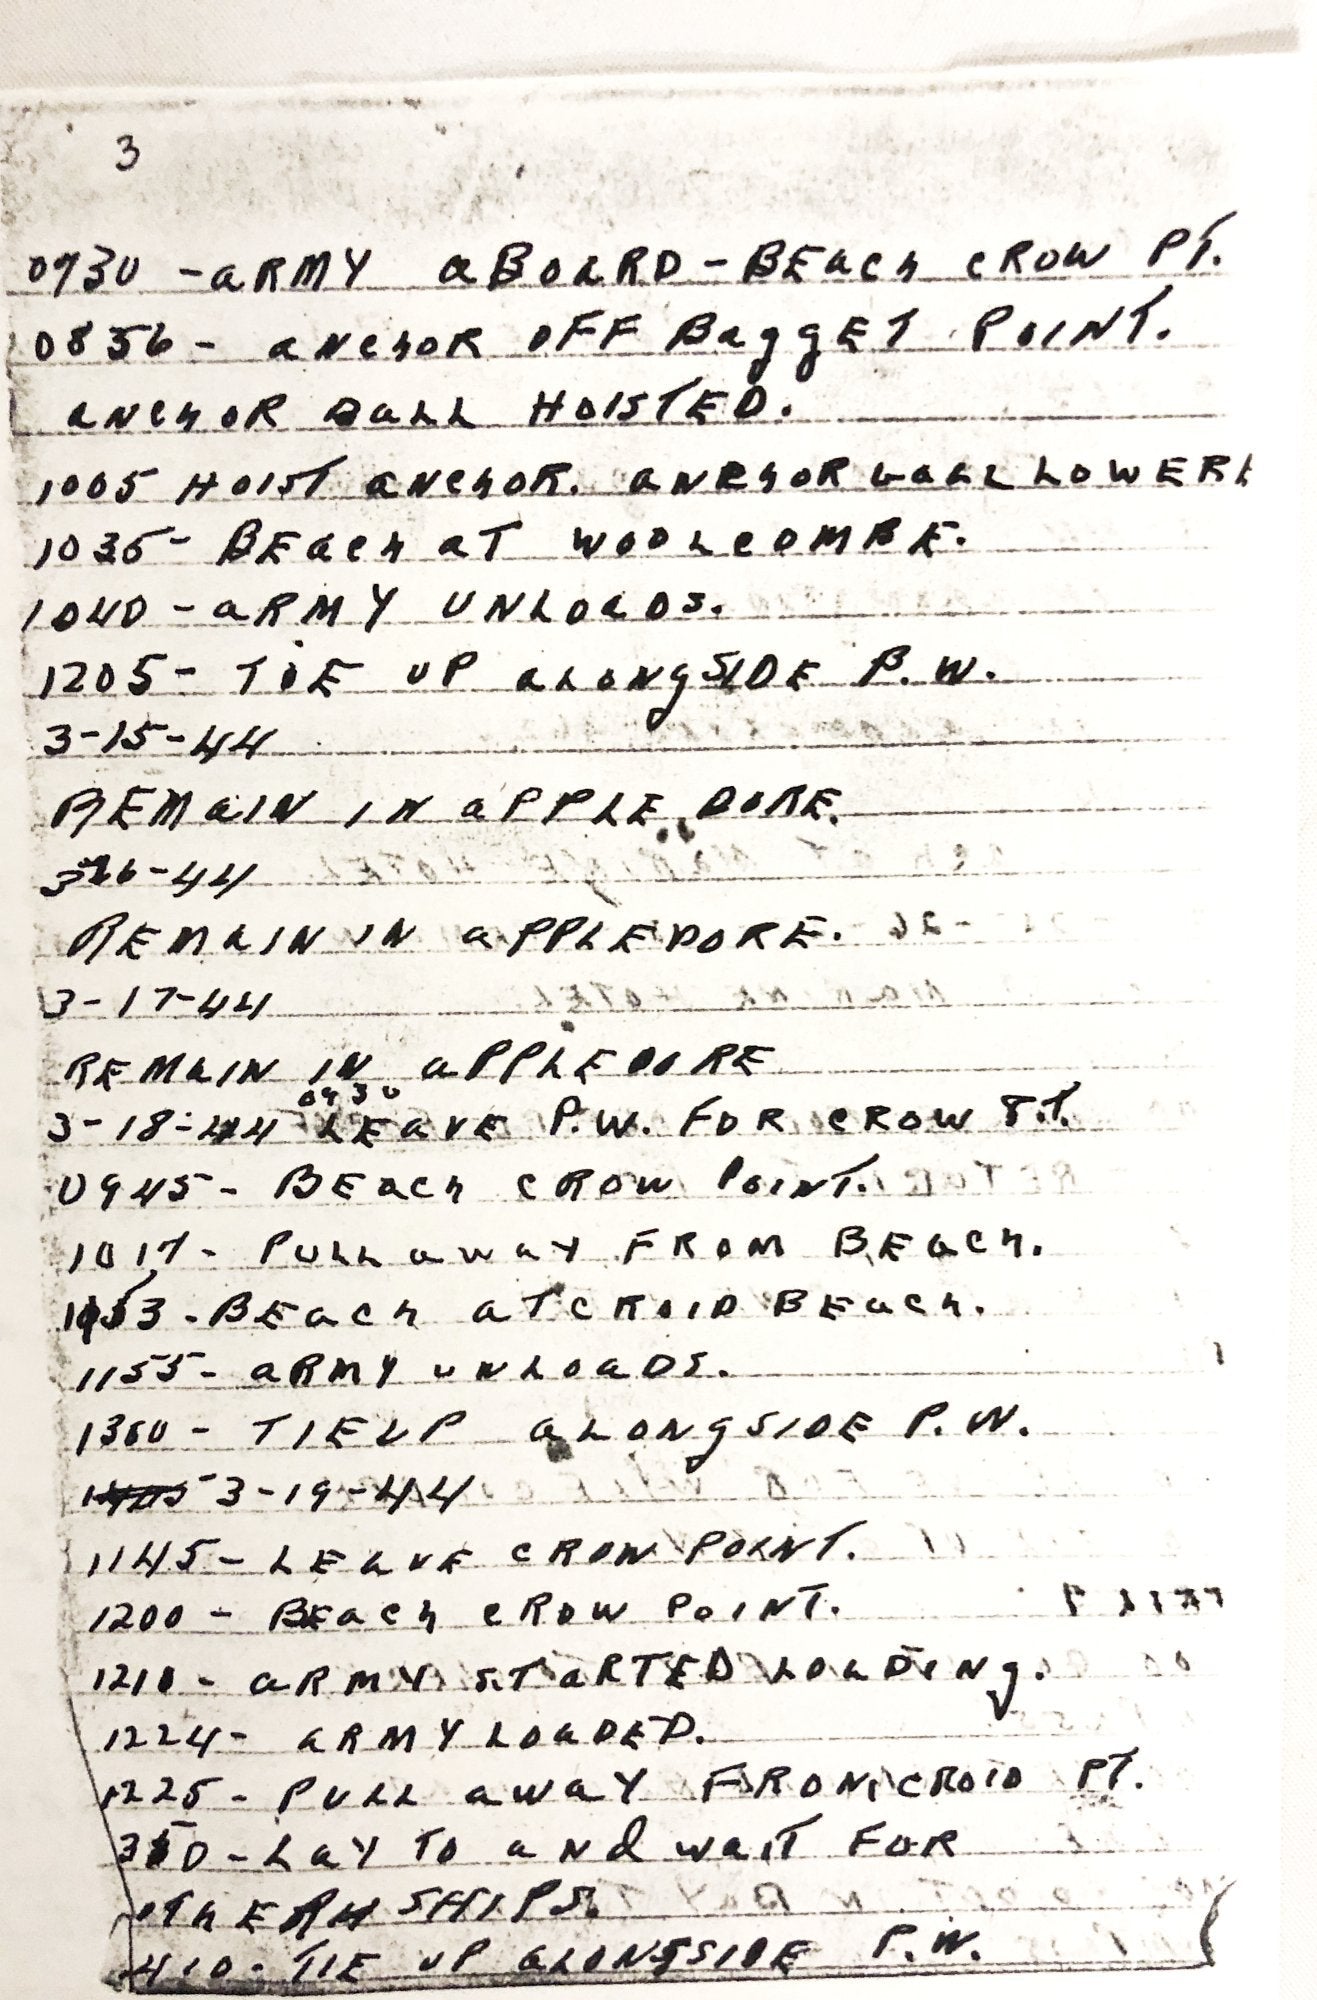 3
0730 - ARMY ABOARD - BEACH CROW PT.
0856 - ANCHOR OFF BAGGET POINT.
ANCHOR BALL HOISTED.
1005 HOIST ANCHOR. ANCHOR BALL LOWERE
1035 - BEACH AT WOOLCOMBE.
1040 - ARMY UNLOADS.
1205 - TIE UP ALONGSIDE P.W.
3-15-44
REMAIN IN APPLE DORE.
3-16-44
REMAIN IN APPLEDORE.
3-17-44
REMAIN IN APPLEDORE
0930
3-18-44 LEAVE P.W. FOR CROW PT.
0945 - BEACH CROW POINT.
1017 - PULL AWAY FROM BEACH.
1053 - BEACH AT CROID BEACH.
1155 - ARMY UNLOADS.
1300 - TIE UP ALONGSIDE P.W.
3-19-44
1145 - LEAVE CROW POINT.
1200 - BEACH CROW POINT.
1210 - ARMY STARTED LOADING.
1224 - ARMY LOADED.
1225 - PULL AWAY FROM CROID PT.
350 - LAY TO AND WAIT FOR
OTHER SHIPS.
410 - TIE UP ALONGSIDE P.W.